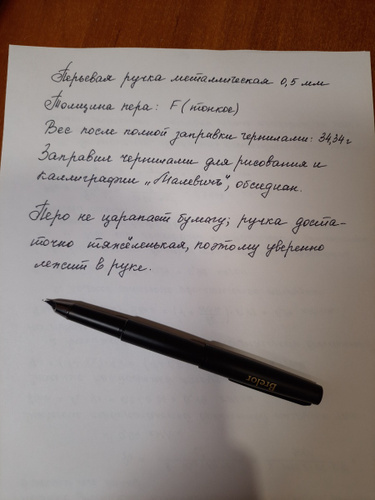 Перьевая ручка металлическая 0,5 мм
Толщина пера: F (тонкое)
Вес после полной заправки чернилами: 34,34 г
Заправил чернилами для рисования и
каллиграфии „Малевичъ", обсидиан.
Перо не царапает бумагу; ручка доста-
точно тяжёленькая, поэтому уверенно
лежит в руке.
Brelor